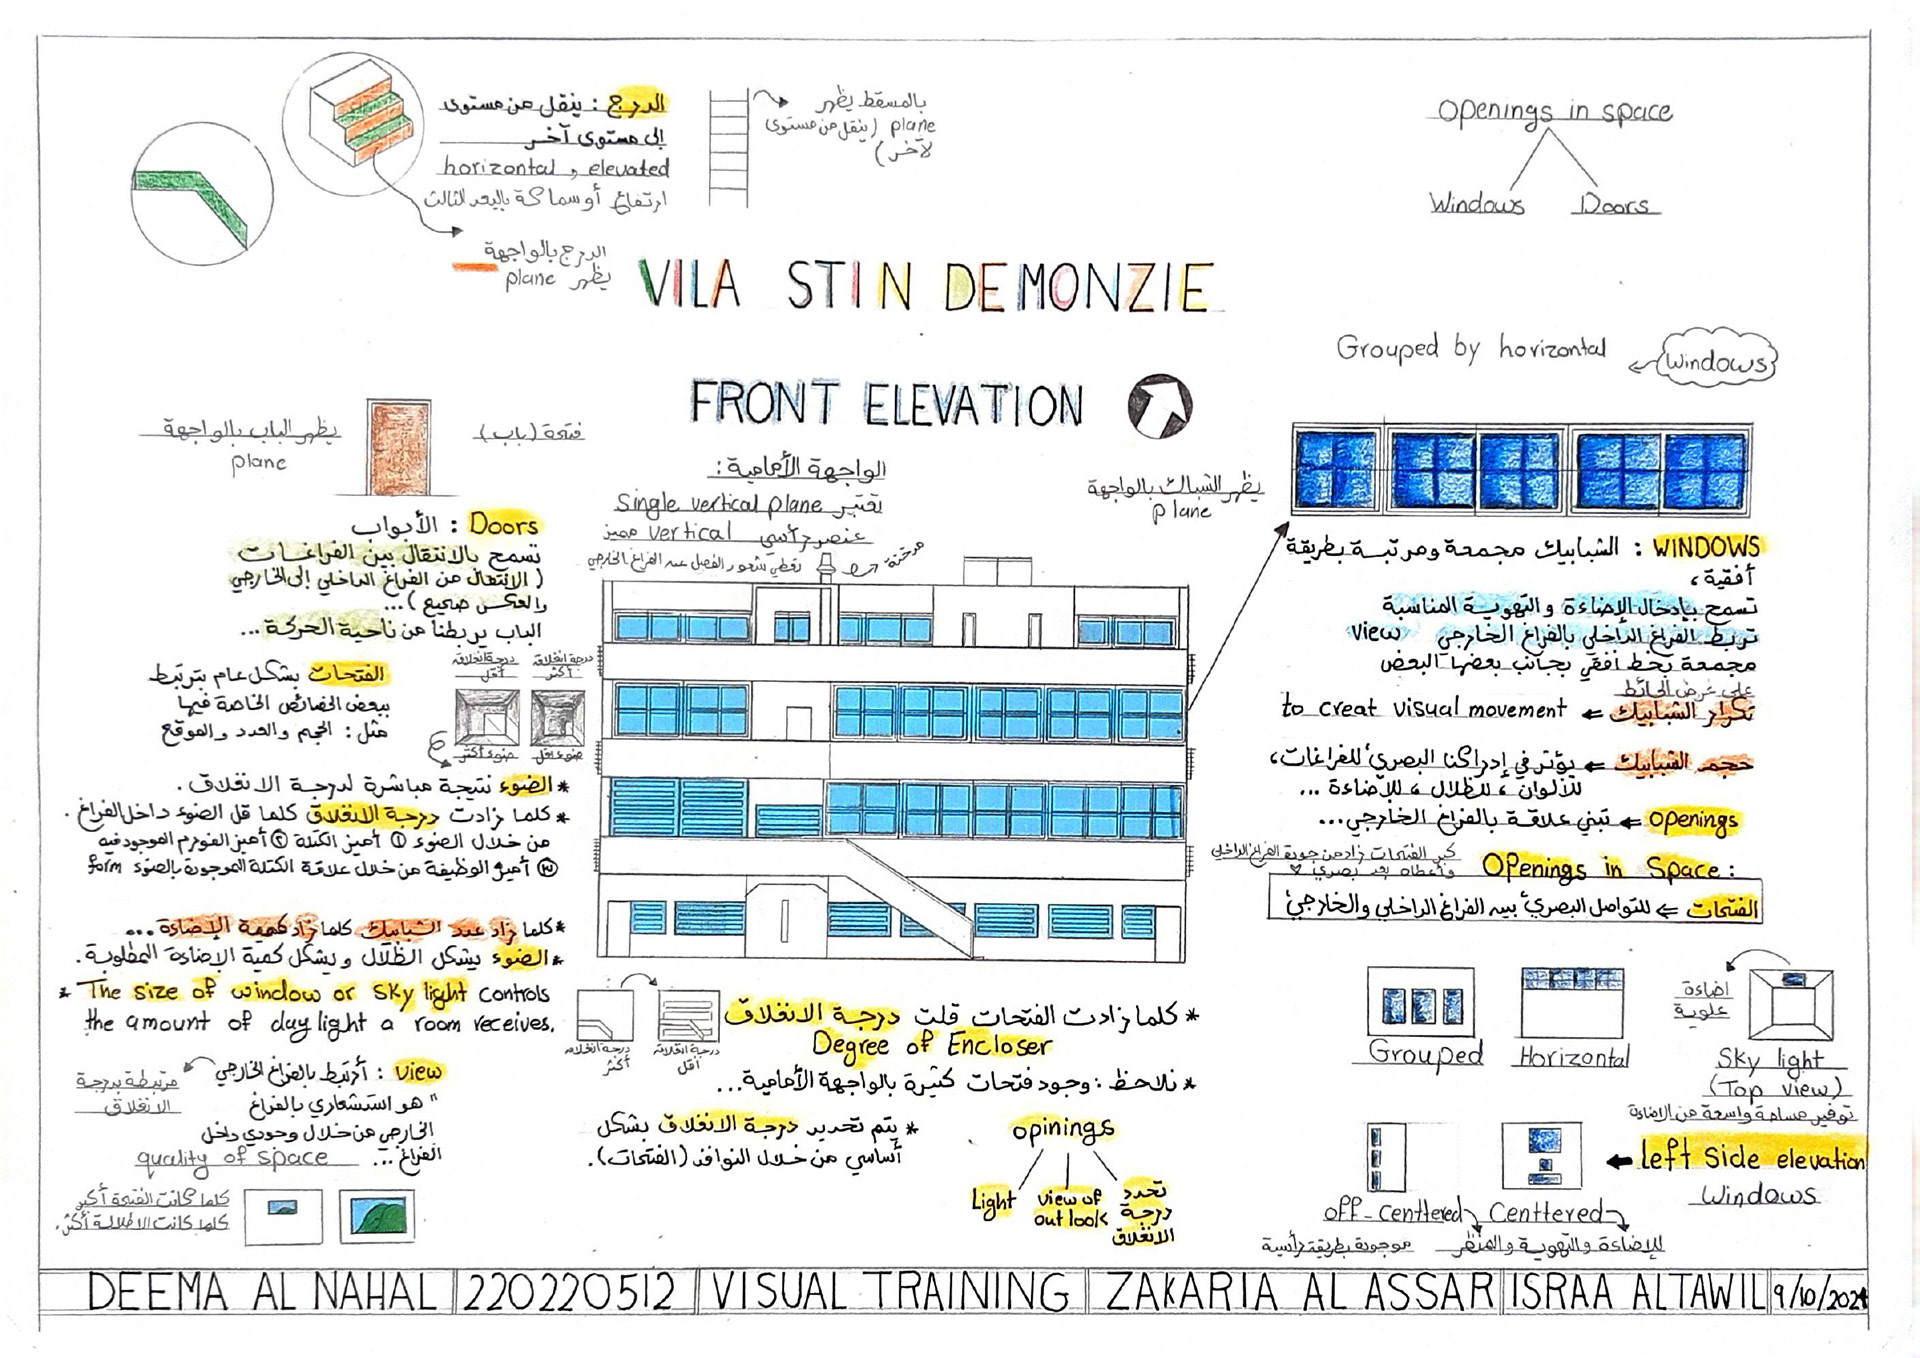 الدرج : ينقل من مستوى
إلى مستوى آخر
horizontal و elevated
ارتفاع أو سماكة بالبعد الثالث
الدرج بالواجهة
يظهر plane
بالمسقط يظهر
plane (ينقل من مستوى
لآخر)
Openings in space
Windows Doors
VILA STIN DEMONZIE
FRONT ELEVATION
Grouped by horizontal
Windows
يظهر الباب بالواجهة
plane
فتحة (باب)
Doors : الأبواب
تسمح بالانتقال بين الفراغات
(الانتقال من الفراغ الداخلي إلى الخارجي
والعكس صحيح)...
الباب يربطنا من ناحية الحركة...
الفتحات بشكل عام ترتبط
ببعض الخصائص الخاصة فيها
مثل : الحجم والعدد والموقع
درجة انغلاقه
أقل
درجة انغلاقه
أكثر
ضوء أكثر
ضوء أقل
* الضوء نتيجة مباشرة لدرجة الانغلاق.
* كلما زادت درجة الانغلاق كلما قل الضوء داخل الفراغ.
من خلال الضوء ① أميز الكتلة ② أميز الفورم الموجود فيه
③ أميز الوظيفة من خلال علاقة الكتلة الموجودة بالضوء form
* كلما زاد عدد الشبابيك كلما زاد كمية الإضاءة...
* الضوء يشكل الظلال ويشكل كمية الإضاءة المطلوبة.
* The size of window or sky light controls
the amount of daylight a room receives.
view : أرتبط بالفراغ الخارجي
"هو استشعاري بالفراغ
الخارجي من خلال وجودي داخل
الفراغ...
quality of space
مرتبطة بدرجة
الانغلاق
كلما كانت الفتحة أكبر
كلما كانت الاطلالة أكثر.
الواجهة الأمامية :
تعتبر Single vertical plane
عنصر رأسي vertical مميز
تعطي شعور الفصل عن الفراغ الخارجي
مدخنة
درجة انغلاقه
أكثر
درجة انغلاقه
أقل
* كلما زادت الفتحات قلت درجة الانغلاق
Degree of Encloser
* نلاحظ : وجود فتحات كثيرة بالواجهة الأمامية...
* يتم تحديد درجة الانغلاق بشكل
أساسي من خلال النوافذ (الفتحات).
opinings
Light
view of
out look
تحدد
درجة
الانغلاق
يظهر الشباك بالواجهة
plane
WINDOWS : الشبابيك مجمعة ومرتبة بطريقة
أفقية،
تسمح بإدخال الإضاءة والتهوية المناسبة
تربط الفراغ الداخلي بالفراغ الخارجي view
مجمعة بخط أفقي بجانب بعضها البعض
على عرض الحائط
تكرار الشبابيك ⇐ to creat visual movement
حجم الشبابيك ⇐ يؤثر في إدراكنا البصري للفراغات،
للألوان، للظلال، للإضاءة...
openings ← تبني علاقة بالفراغ الخارجي...
كبر الفتحات زاد من جودة الفراغ الداخلي
وأعطاه بعد بصري
Openings in Space :
الفتحات ⇐ للتواصل البصري بين الفراغ الداخلي والخارجي
Grouped
Horizontal
اضاءة
علوية
Sky light
(Top view)
توفير مساحة واسعة من الاضاءة
left side elevation
Windows
off-centtered
Centtered
موجودة بطريقة رأسية
للإضاءة والتهوية والمنظر
DEEMA AL NAHAL 220220512 VISUAL TRAINING ZAKARIA AL ASSAR ISRAA ALTAWIL 9/10/2024